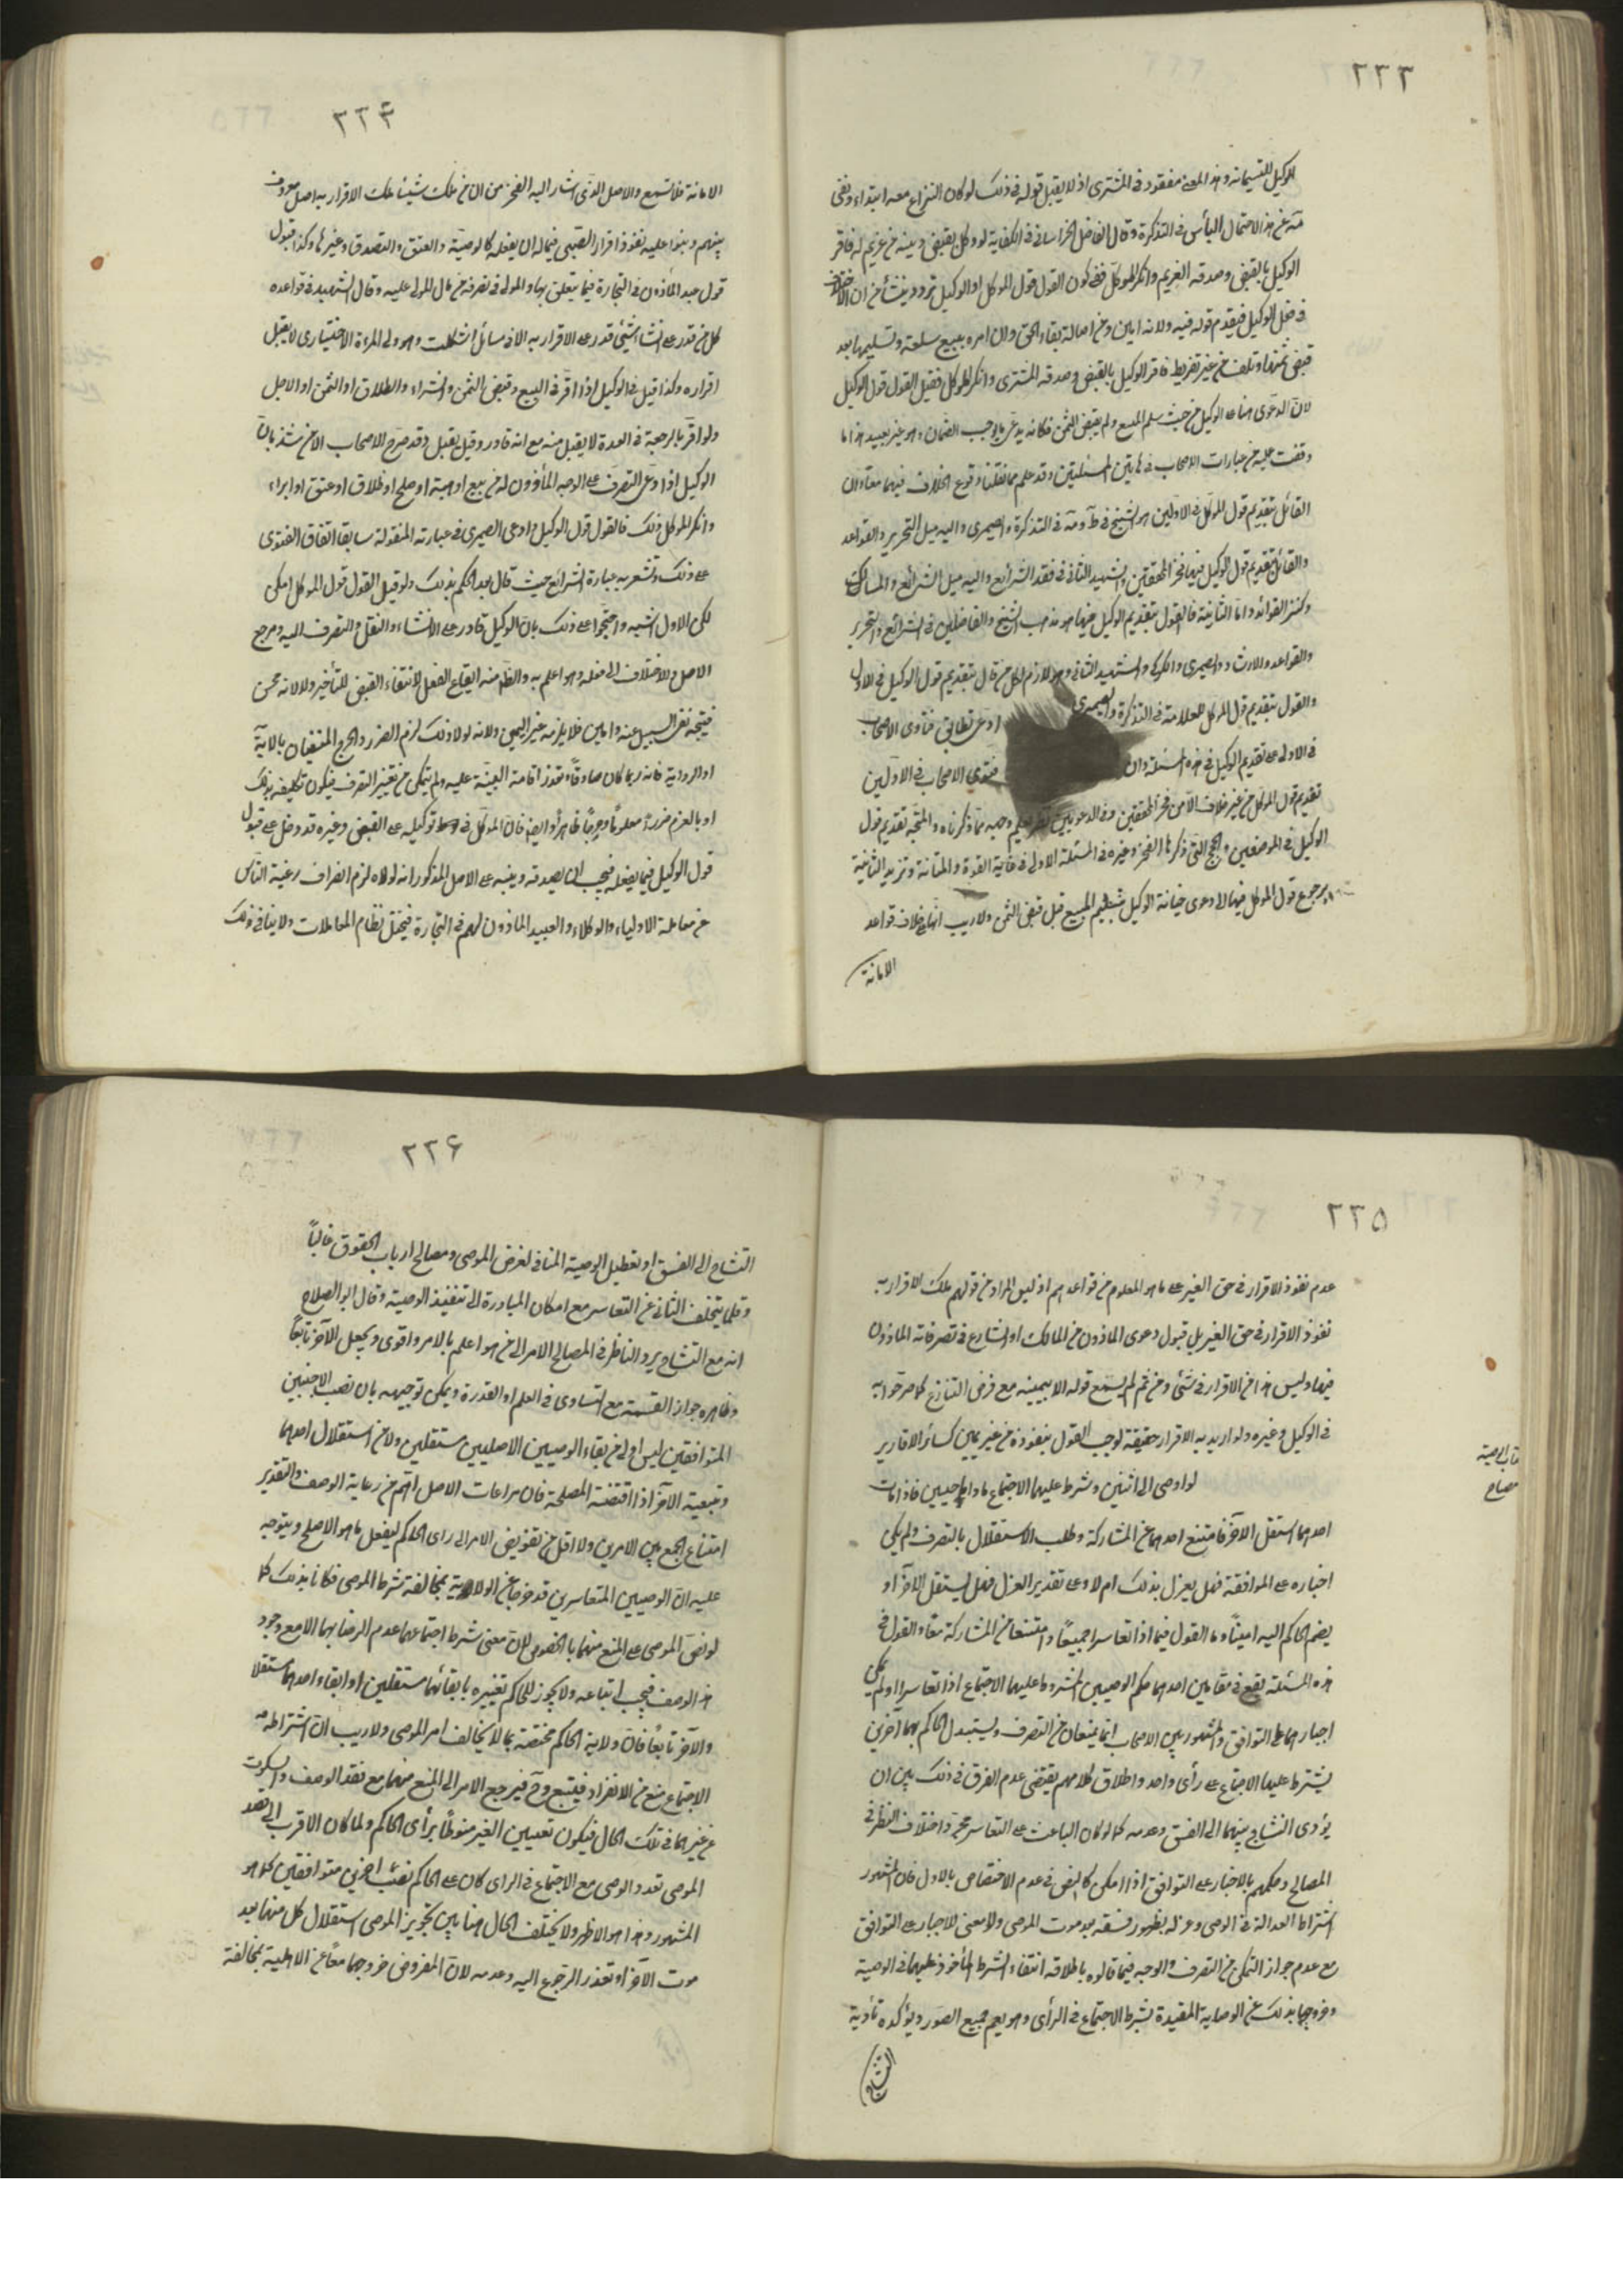 ٢٣٣
الوكيل للتسليمانه وهذا المعنى مفقود في المشترى اذ لا يقبل قوله في ذلك لو كان النزاع معه ابتداء ونفى
مه عن هذا الاحتمال البأس في التذكرة وقال الفاضل الخراساني في الكفاية لو وكل بقبض دينه من غريم له فاقر
الوكيل بالقبض وصدقه الغريم وانكر الموكل ففي كون القول قول الموكل او الوكيل تردد ينشأ من ان الاختلاف
في فعل الوكيل فيقدم قوله فيه ولانه امين ومن اصالة بقاء الحق وان امره ببيع سلعته وتسليمها بعد
قبض ثمنها وتلف من غير تفريط فاقر الوكيل بالقبض وصدقه المشترى وانكر الموكل فقيل القول قول الوكيل
لان الدعوى هنا على الوكيل من حيث سلم المبيع ولم يقبض الثمن فكانه يدعى ما يوجب الضمان وهو غير بعيد هذا ما
وقفت عليه من عبارات الاصحاب في هاتين المسئلتين وقد علم مما نقلنا وقوع الخلاف فيهما معا وان
القائل بتقديم قول الموكل في الاولين هو الشيخ في ط ومه في التذكرة والصيمرى واليه ميل التحرير والقواعد
والقائل بتقديم قول الوكيل فيهما فخر المحققين والشهيد الثاني في فقد الشرائع واليه ميل الشرائع والمسالك
وكنز الفوائد واما الثانية فالقول بتقديم الوكيل فيها هو مذهب الشيخ والفاضلين في الشرائع والتحرير
والقواعد والارشاد والصيمرى والكركى والشهيد الثاني وهو لازم لكل من قال بتقديم قول الوكيل في الاولى
والقول بتقديم قول الموكل للعلامة في التذكرة والصيمرى ادعى تطابق فتاوى الاصحاب
في الاولى على تقديم الوكيل في هذه المسئلة وان فتوى الاصحاب في الاولين
تقديم قول الموكل من غير خلاف الا من فخر المحققين وفي الدعويين وجهه مما ذكرناه والمتجه تقديم قول
الوكيل في الموضعين والحجج التي ذكرها الفخر وغيره في المسئلة الاولى في غاية القوة والمتانة وتزيد الثانية
برجوع قول الموكل فيها الى دعوى خيانة الوكيل بتسليم المبيع قبل قبض الثمن ولا ريب انها خلاف قواعد
الامانة
٢٣٤
الامانة فلا تسمع والاصل الذى اشار اليه الفخر من ان من ملك شيئا ملك الاقرار به اصل معروف
بينهم وبنوا عليه نفوذ اقرار الصبى فيما له ان يفعله كالوصية والعتق والتصدق وغيرها وكذا قبول
قول عبد المأذون في التجارة فيما يتعلق بها والمولى في تصرفه من مال المولى عليه وقال الشهيد في قواعده
كل من قدر على انشاء شيء قدر على الاقرار به الا في مسائل اشكلت وهو ولى المرءة الاختيارى لا يقبل
اقراره وكذا قيل في الوكيل اذا اقر في البيع وقبض الثمن والشراء والطلاق او الثمن او الاجل
ولو اقر بالرجعة في العدة لا يقبل منه مع انه قادر وقيل يقبل وقد صرح الاصحاب الا من شذ بان
الوكيل اذا ادعى التصرف على الوجه المأذون له من بيع او هبة او صلح او طلاق او عتق او ابراء
وانكر الموكل ذلك فالقول قول الوكيل وادعى الصيمرى في عبارته المنقولة سابقا اتفاق الفتوى
على ذلك وتشعر به عبارة الشرائع حيث قال بعد الحكم بذلك ولو قيل القول قول الموكل امكن
لكن الاول اشبه واحتجوا على ذلك بان الوكيل قادر على الانشاء والنقل والتصرف اليه ومرجع
الاصل والاختلاف الى فعله وهو اعلم به والظ منه ايقاع الفعل لانتفاء القبض للتأخير ولانه محسن
فيتجه نفى السبيل عنه وامين فلا يلزمه غير اليمين ولانه لولا ذلك لزم الضرر والحرج المنفيان بالاية
او الرواية فانه ربما كان صادقا وتعذر اقامة البينة عليه ولم يتمكن من تغيير التصرف فيكون تكليفه بذلك
او بالغرم ضررا معلوما وحرجا ظاهرا وايضا فان الموكل في توكيله على القبض وغيره قد دخل على قبول
قول الوكيل فيما يفعله فيجب ان يصدقه وينبه على الاصل المذكور انه لولاه لزم انصراف رغبة الناس
عن معاملة الاولياء والوكلاء والعبيد الماذون لهم في التجارة فيختل نظام المعاملات ولا ينافي ذلك
٢٣٥
عدم نفوذ الاقرار في حق الغير على ما هو المعلوم من قواعدهم اذ ليس المراد من قولهم ملك الاقرار به
نفوذ الاقرار في حق الغير بل قبول دعوى الماذون من المالك او الشارع في تصرفاته الماذون
فيها وليس هذا من الاقرار في شئ ومن ثم لم يسمع قوله الا بيمينه مع فرض التنازع كما صرحوا به
في الوكيل وغيره ولو اريد به الاقرار حقيقة لوجب القول بنفوذه من غير يمين كسائر الاقارير
كتاب الوصية
مصباح
لو اوصى الى اثنين وشرط عليهما الاجتماع ما داما حيين فاذا مات
احدهما استقل الآخر فامتنع احدهما عن المشاركة وطلب الاستقلال بالتصرف ولم يمكن
اخباره على الموافقة فهل يعزل بذلك ام لا وعلى تقدير العزل فهل يستقل الآخر او
يضم الحاكم اليه امينا وما القول فيما اذا تعاسرا جميعا وامتنعا من المشاركة معا والقول في
هذه المسئلة يقع في مقامين احدهما حكم الوصيين المشروط عليهما الاجتماع اذا تعاسرا ولم يمكن
اجبارهما على التوافق والمشهور بين الاصحاب انهما يمنعان من التصرف ويستبدل الحاكم بهما آخرين
يشترط عليهما الاجتماع على رأى واحد واطلاق كلامهم يقتضى عدم الفرق في ذلك بين ان
يؤدى التشاح بينهما الى الفسق وعدمه كما لو كان الباعث على التعاسر تحرى واختلاف النظر في
المصالح وحكمهم بالاجبار على التوافق اذا امكن كالنص في عدم الاختصاص بالاول فان المشهور
اشتراط العدالة في الوصى وعزله بظهور فسقه بعد موت الموصى ولا معنى للاجبار على التوافق
مع عدم جواز التمكن من التصرف والوجه فيما قالوه باطلاقه انتفاء الشرط المأخوذ عليهما في الوصية
وخروجهما بذلك عن الوصاية المقيدة بشرط الاجتماع في الرأى وهو يعم جميع الصور ويؤكده تأدية
التشاح
٢٣۶
التشاح الى الفسق او تعطيل الوصية المنافى لغرض الموصى ومصالح ارباب الحقوق غالبا
وقلما يتخلف الثاني عن التعاسر مع امكان المبادرة الى تنفيذ الوصية وقال ابو الصلاح
انه مع التشاح يرد الناظر في المصالح الامر الى من هو اعلم بالامر واقوى ويجعل الآخر تابعا
وظاهره جواز القسمة مع التساوى في العلم او القدرة ويمكن توجيهه بان نصب الاجنبيين
المتوافقين ليس اولى من بقاء الوصيين الاصليين مستقلين ولا من استقلال احدهما
وتبعية الآخر اذا اقتضته المصلحة فان مراعات الاصل اهم من رعاية الوصف والتقدير
امتناع الجمع بين الامرين ولا اقل من تفويض الامر الى راى الحاكم ليفعل ما هو الاصلح ويتوجه
عليه ان الوصيين المتعاسرين قد خرجا عن الولاية بمخالفة شرط الموصى فكانا بذلك كما
لو نص الموصى على المنع منهما بالخصوص لان معنى شرط اجتماعهما عدم الرضا بهما الا مع وجود
هذا الوصف فيجب اتباعه ولا يجوز للحاكم تغييره بابقائهما مستقلين او ابقاء احدهما مستقلا
والآخر تابعا فان ولاية الحاكم مختصة بما لا يخالف امر الموصى ولا ريب ان اشتراطه
الاجتماع منع من الانفراد فيتبع وح فيرجع الامر الى المنع منهما مع فقد الوصف والسكوت
عن غيرهما في تلك الحال فيكون تعيين الغير منوطا برأى الحاكم ولما كان الاقرب الى قصد
الموصى تعدد الوصى مع الاجتماع في الراى كان على الحاكم نصب اخرين متوافقين كما هو
المشهور وهذا هو الاظهر ولا يختلف الحال هنا بين تجويز الموصى استقلال كل منهما بعد
موت الآخر او تعذر الرجوع اليه وعدمه لان المفروض خروجهما معا عن الاهلية بمخالفة